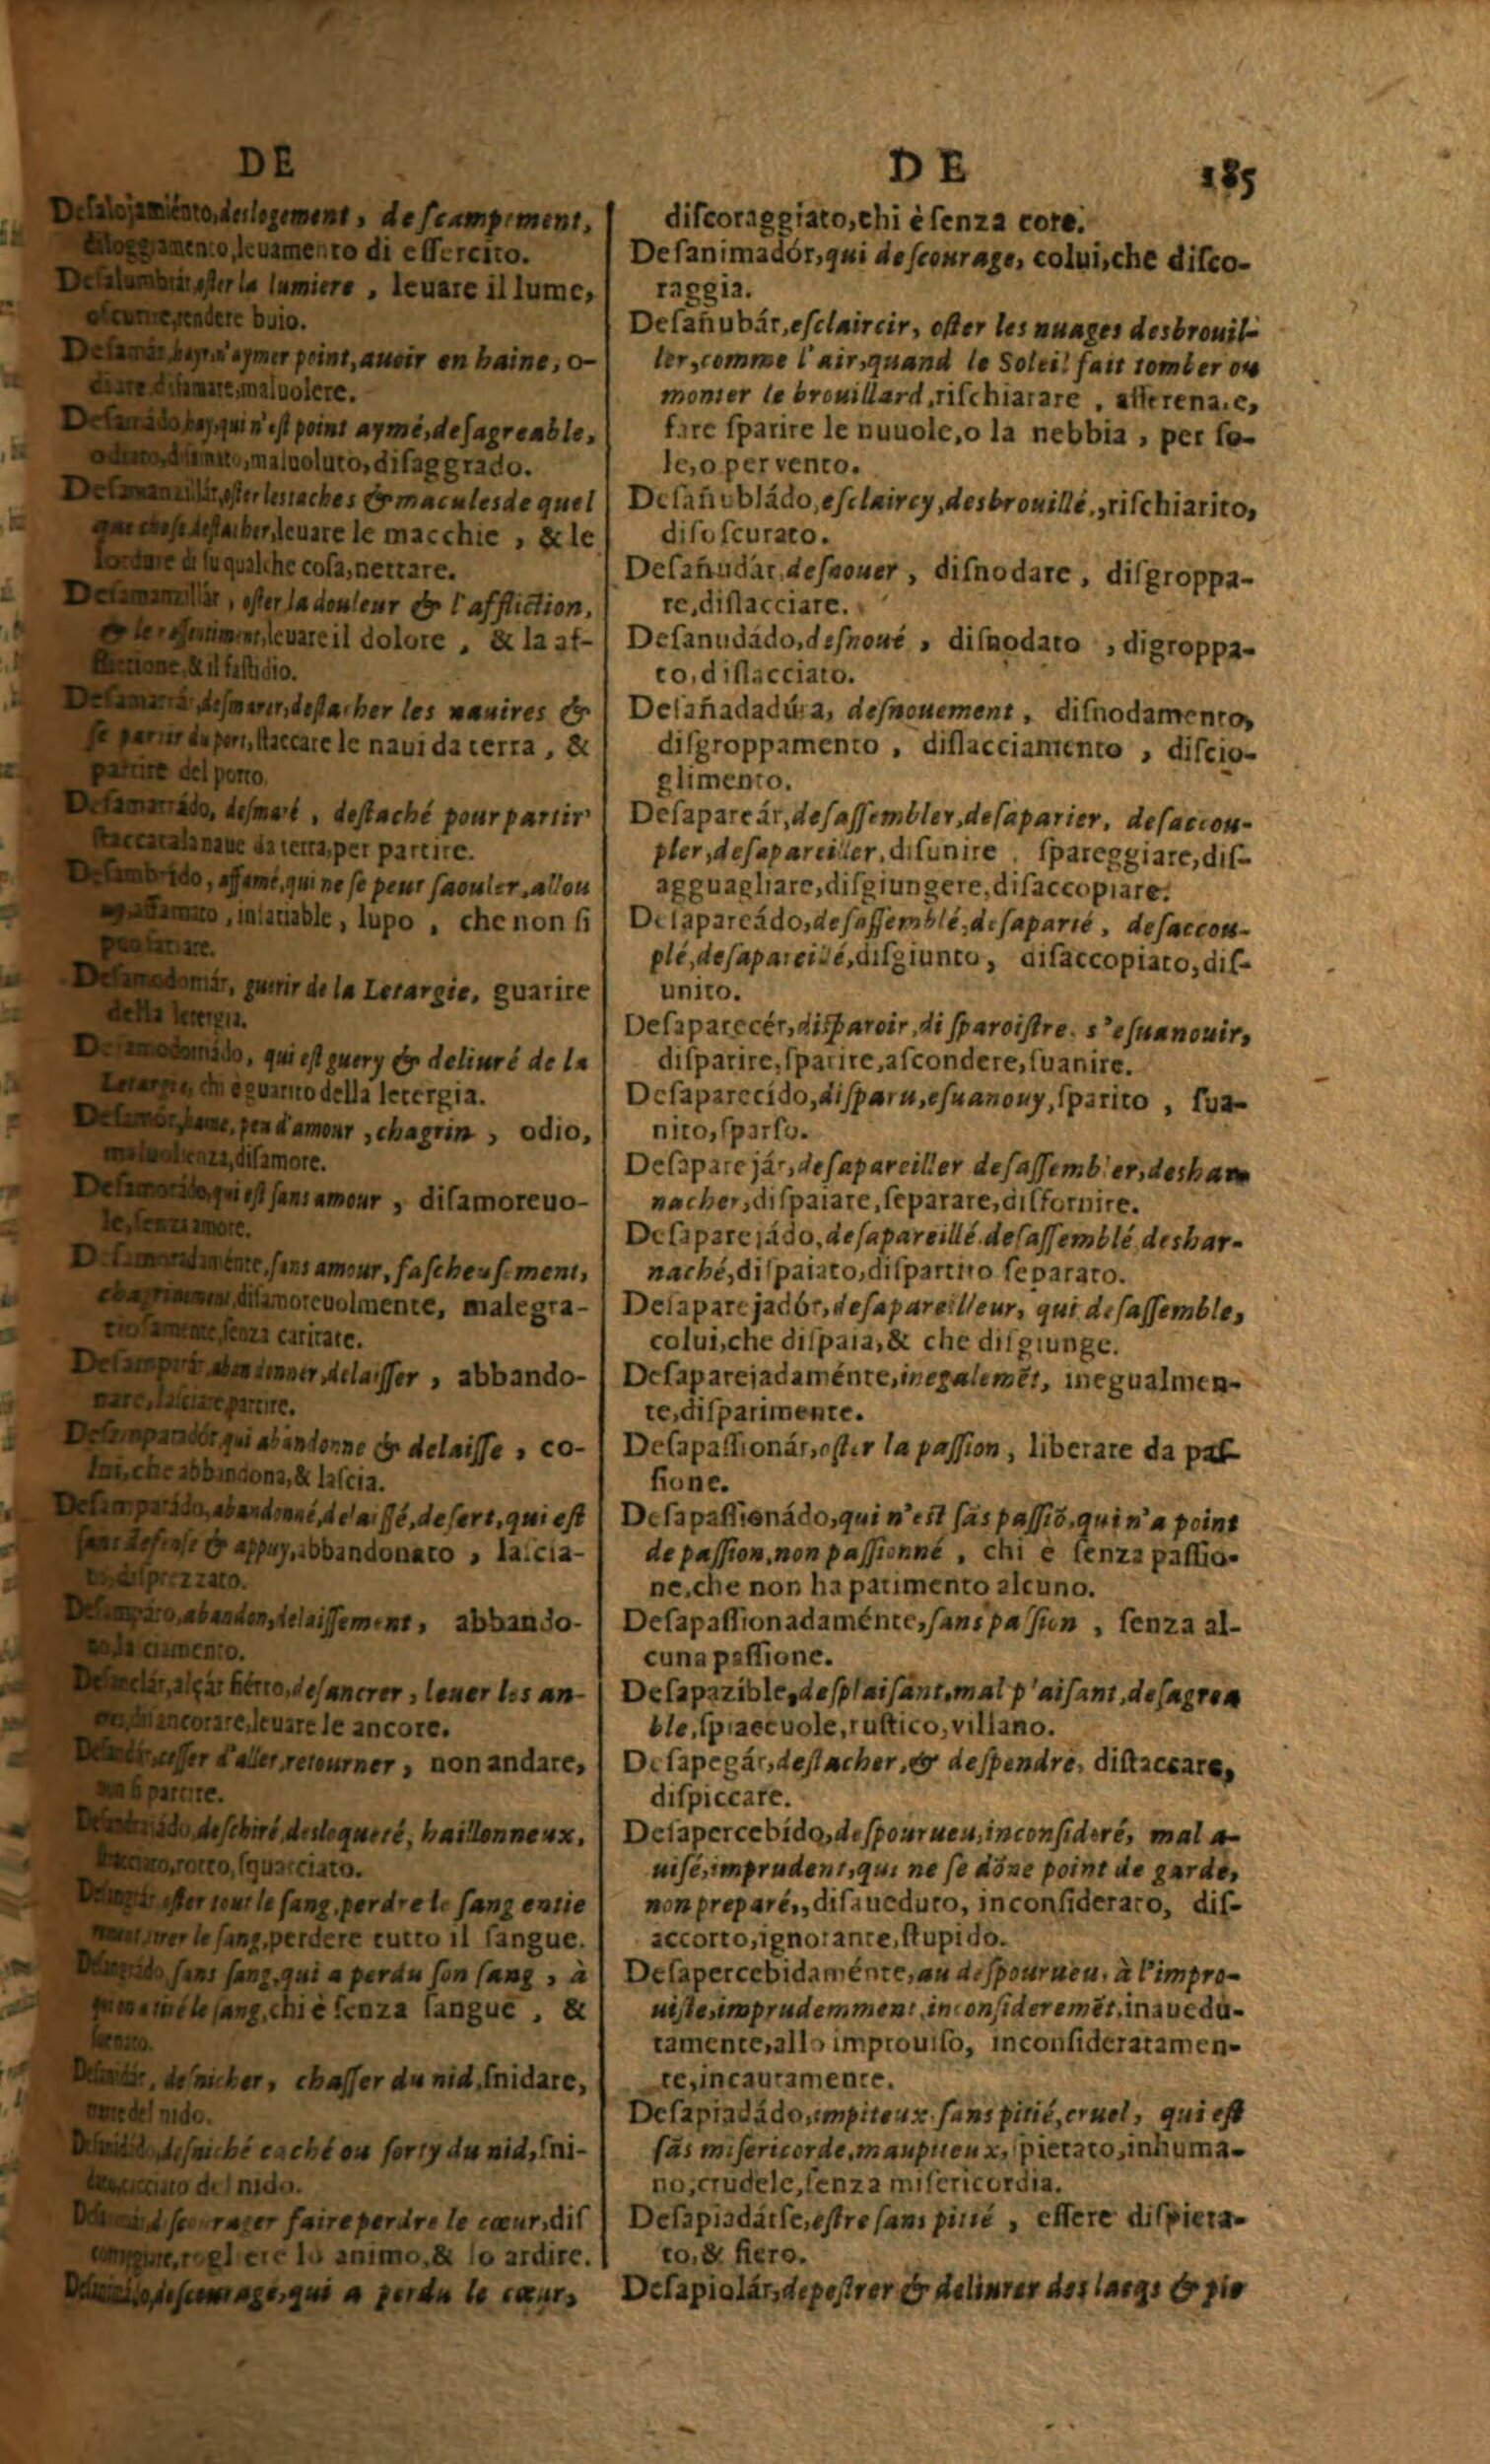 DE
Deſalojamiénto, deslogement, deſcampement,
diloggiamento, leuamento di eſſercito.
Deſalumbrár, oſter la lumiere, leuare il lume,
oſcurire, rendere buio.
Deſamár, hayr, n'aymer point, auoir en haine, o-
diare, diſamare, maluolere.
Deſamádo, hay, qui n'eſt point aymé, deſagreable,
odiato, diſamato, maluoluto, diſaggrado.
Deſamanzillár, oſter les taches & macules de quel
que choſe, deſtacher, leuare le macchie, & le
lordure di ſu qualche coſa, nettare.
Deſamanzillár, oſter la douleur & l'affliction,
leuare il dolore, & la af-
flittione, & il faſtidio.
Deſamarrár, deſmarer, deſtacher les nauires &
ſe partir du port, ſtaccare le naui da terra, &
partire del porto.
Deſamarrádo, deſmaré, deſtaché pour partir
ſtaccata la naue da terra, per partire.
Deſambrído, affamé, qui ne ſe peut ſaouler, allou
affamato, inſatiable, lupo, che non ſi
puo ſatiare.
Deſamodorrár, guerir de la Letargie, guarire
della letergia.
qui eſt guery & deliuré de la
Letargie, chi è guarito della letergia.
Deſamór, haine, peu d'amour, chagrin, odio,
maluolienza, diſamore.
Deſamorádo, qui eſt ſans amour, diſamoreuo-
le, ſenza amore.
Deſamoradaménte, ſans amour, faſcheuſement,
diſamoreuolmente, malegra-
tioſamente, ſenza caritate.
Deſamparár, abandonner, delaiſſer, abbando-
nare, laſciare, partire.
Deſamparadór, qui abandonne & delaiſſe, co-
lui, che abbandona, & laſcia.
Deſamparádo, abandonné, delaiſſé, deſert, qui eſt
ſans defenſe & appuy, abbandonato, laſcia-
to, diſprezzato.
Deſampáro, abandon, delaiſſement, abbando-
no, laſciamento.
alçár fiérro, deſancrer, leuer les an-
cres, diſancorare, leuare le ancore.
Deſandár, ceſſer d'aller, retourner, non andare,
non ſi partire.
deſchiré, desloqueté, haillonneux,
ſtracciato, rotto, ſquarciato.
Deſangrár, oſter tout le ſang, perdre le ſang entie
rement, tirer le ſang, perdere tutto il ſangue.
Deſangrádo, ſans ſang, qui a perdu ſon ſang, à
qui on a tiré le ſang, chi è ſenza ſangue, &
ſuenato.
Deſanidár, deſnicher, chaſſer du nid, ſnidare,
del nido.
Deſanidádo, deſniché caché ou ſorty du nid, ſni-
del nido.
Deſanimár, deſcourager faire perdre le cœur, diſ
coraggiare, togliere lo animo, & lo ardire.
Deſanimádo, deſcouragé, qui a perdu le cœur,
DE 185
diſcoraggiato, chi è ſenza core.
Deſanimadór, qui deſcourage, colui, che diſco-
raggia.
Deſañubár, eſclaircir, oſter les nuages desbrouil-
ler, comme l'air, quand le Soleil fait tomber ou
monter le brouillard, riſchiarare, aſſerenare,
fare ſparire le nuuole, o la nebbia, per ſo-
le, o per vento.
Deſañubládo, eſclaircy, desbrouillé, , riſchiarito,
diſoſcurato.
Deſañudár, deſnouer, diſnodare, diſgroppa-
re, diſlacciare.
Deſanudádo, deſnoué, diſnodato, digroppa-
to, diſlacciato.
Deſañadadúra, deſnouement, diſnodamento,
diſgroppamento, diſlacciamento, diſcio-
glimento.
Deſapareár, deſaſſembler, deſaparier, deſaccou-
pler, deſapareiller, diſunire, ſpareggiare, diſ-
agguagliare, diſgiungere, diſaccopiare.
Deſapareádo, deſaſſemblé, deſaparié, deſaccou-
plé, deſapareillé, diſgiunto, diſaccopiato, diſ-
unito.
Deſaparecér, diſparoir, diſparoiſtre, s'eſuanouir,
diſparire, ſparire, aſcondere, ſuanire.
Deſaparecído, diſparu, eſuanouy, ſparito, ſua-
nito, ſparſo.
Deſaparejár, deſapareiller deſaſſembler, deshar
nacher, diſpaiare, ſeparare, diſfornire.
Deſaparejádo, deſapareillé, deſaſſemblé, deshar-
naché, diſpaiato, diſpartito ſeparato.
Deſaparejadór, deſapareilleur, qui deſaſſemble,
colui, che diſpaia, & che diſgiunge.
Deſaparejadaménte, inegalemẽt, inegualmen-
te, diſparimente.
Deſapaſſionár, oſter la paſſion, liberare da paſ-
ſione.
Deſapaſſionádo, qui n'eſt ſãs paſſiõ, qui n'a point
de paſſion, non paſſionné, chi è ſenza paſſio-
ne, che non ha patimento alcuno.
Deſapaſſionadaménte, ſans paſſion, ſenza al-
cuna paſſione.
Deſapazíble, deſplaiſant, mal plaiſant, deſagrea
ble, ſpiaceuole, ruſtico, villano.
Deſapegár, deſtacher, & deſpendre, diſtaccare,
diſpiccare.
Deſapercebído, deſpourueu, inconſideré, mal a-
uiſé, imprudent, qui ne ſe dõne point de garde,
non preparé, , diſaueduto, inconſiderato, diſ-
accorto, ignorante, ſtupido.
Deſapercebidaménte, au deſpourueu, à l'impro-
uiſte, imprudemment, inconſideremẽt, inauedu-
tamente, allo improuiſo, inconſideratamen-
te, incautamente.
Deſapiadádo, impiteux ſans pitié, cruel, qui eſt
ſãs miſericorde, maupiteux, ſpietato, inhuma-
no, crudele, ſenza miſericordia.
Deſapiadárſe, eſtre ſans pitié, eſſere diſpieta-
to, & fiero.
Deſapiolár, depeſtrer & deliurer des laeqs & pie